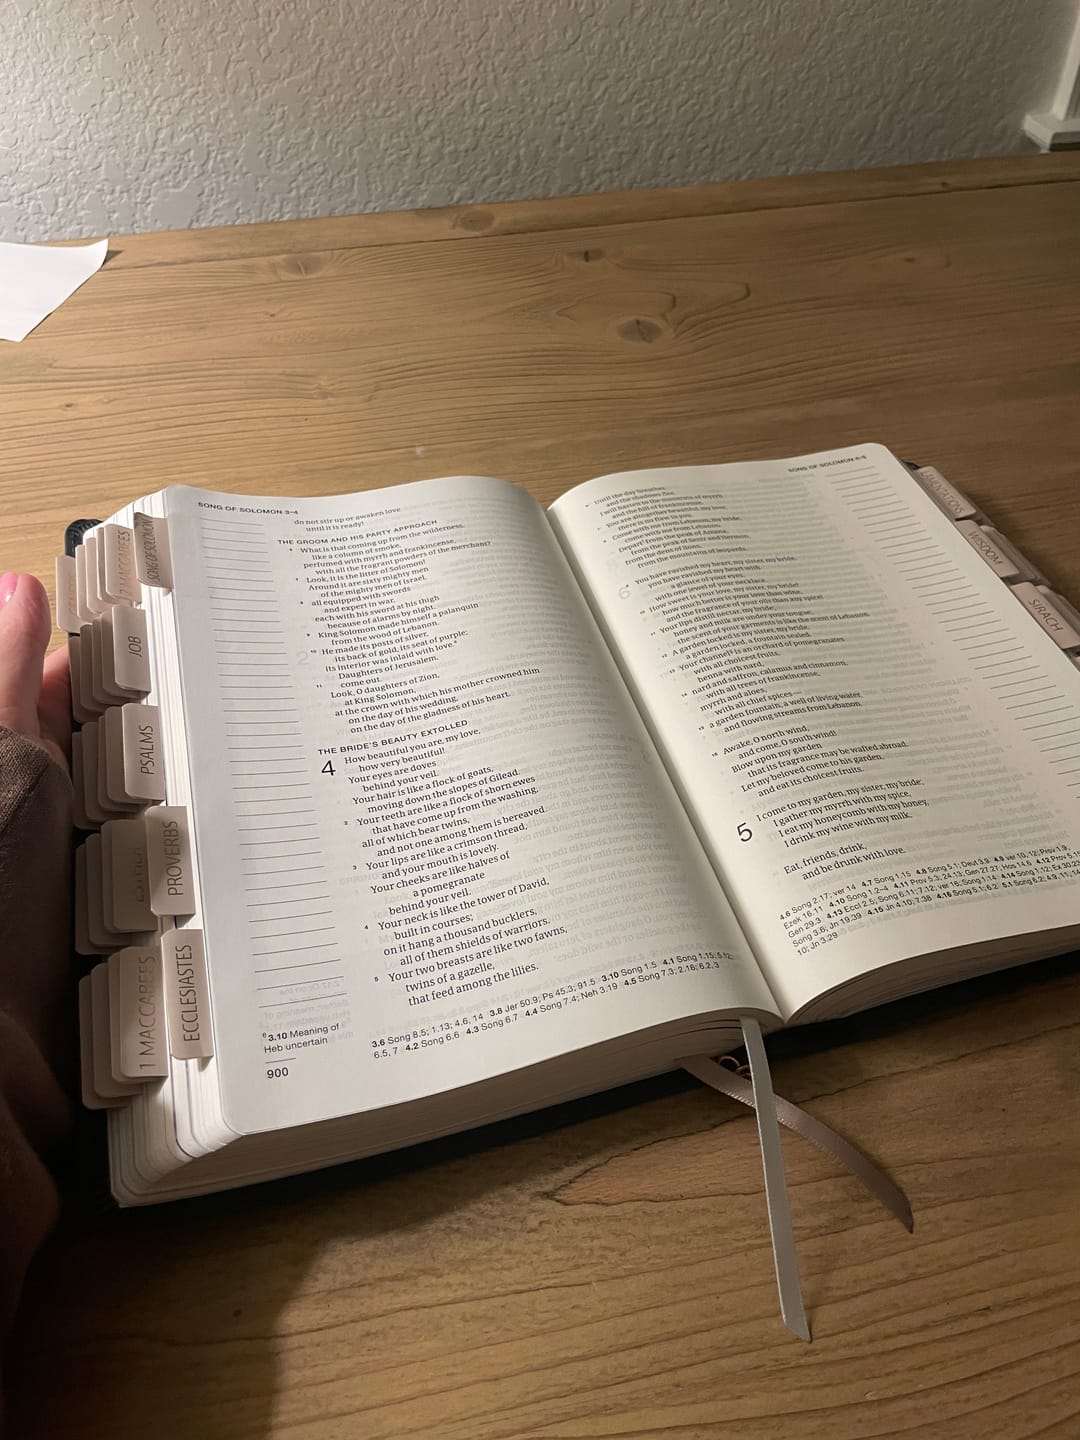 SONG OF SOLOMON 3–4
do not stir up or awaken love
until it is ready!
THE GROOM AND HIS PARTY APPROACH
6 What is that coming up from the wilderness,
like a column of smoke,
perfumed with myrrh and frankincense,
with all the fragrant powders of the merchant?
7 Look, it is the litter of Solomon!
Around it are sixty mighty men
of the mighty men of Israel,
8 all equipped with swords
and expert in war,
each with his sword at his thigh
because of alarms by night.
9 King Solomon made himself a palanquin
from the wood of Lebanon.
10 He made its posts of silver,
its back of gold, its seat of purple;
its interior was inlaid with love.
Daughters of Jerusalem,
11 come out.
Look, O daughters of Zion,
at King Solomon,
at the crown with which his mother crowned him
on the day of his wedding,
on the day of the gladness of his heart.
THE BRIDE'S BEAUTY EXTOLLED
4 How beautiful you are, my love,
how very beautiful!
Your eyes are doves
behind your veil.
Your hair is like a flock of goats,
moving down the slopes of Gilead.
2 Your teeth are like a flock of shorn ewes
that have come up from the washing,
all of which bear twins,
and not one among them is bereaved.
3 Your lips are like a crimson thread,
and your mouth is lovely.
Your cheeks are like halves of
a pomegranate
behind your veil.
4 Your neck is like the tower of David,
built in courses;
on it hang a thousand bucklers,
all of them shields of warriors.
5 Your two breasts are like two fawns,
twins of a gazelle,
that feed among the lilies.
e 3.10 Meaning of
Heb uncertain
3.6 Song 8.5; 1.13; 4.6, 14 3.8 Jer 50.9; Ps 45.3; 91.5 3.10 Song 1.5 4.1 Song 1.15; 5.12;
6.5, 7 4.2 Song 6.6 4.3 Song 6.7 4.4 Song 7.4; Neh 3.19 4.5 Song 7.3; 2.16; 6.2, 3
900
SONG OF SOLOMON 4–5
6 Until the day breathes
and the shadows flee,
I will hasten to the mountain of myrrh
and the hill of frankincense.
7 You are altogether beautiful, my love;
there is no flaw in you.
8 Come with me from Lebanon, my bride;
come with me from Lebanon.
Depart from the peak of Amana,
from the peak of Senir and Hermon,
from the dens of lions,
from the mountains of leopards.
9 You have ravished my heart, my sister, my bride;
you have ravished my heart with
a glance of your eyes,
with one jewel of your necklace.
10 How sweet is your love, my sister, my bride!
how much better is your love than wine,
and the fragrance of your oils than any spice!
11 Your lips distill nectar, my bride;
honey and milk are under your tongue;
the scent of your garments is like the scent of Lebanon.
12 A garden locked is my sister, my bride,
a garden locked, a fountain sealed.
13 Your channel is an orchard of pomegranates
with all choicest fruits,
henna with nard,
14 nard and saffron, calamus and cinnamon,
with all trees of frankincense,
myrrh and aloes,
with all chief spices—
15 a garden fountain, a well of living water,
and flowing streams from Lebanon.
16 Awake, O north wind,
and come, O south wind!
Blow upon my garden
that its fragrance may be wafted abroad.
Let my beloved come to his garden,
and eat its choicest fruits.
5 I come to my garden, my sister, my bride;
I gather my myrrh with my spice,
I eat my honeycomb with my honey,
I drink my wine with my milk.
Eat, friends, drink,
and be drunk with love.
4.6 Song 2.17; ver 14 4.7 Song 1.15 4.8 Song 5.1; Deut 3.9 4.9 ver 10, 12; Prov 1.9;
Ezek 16.11 4.10 Song 1.2–4 4.11 Prov 5.3; 24.13; Gen 27.27; Hos 14.6 4.12 Prov 5.15
Gen 29.3 4.13 Eccl 2.5; Song 6.11; 7.12; ver 16; Song 1.14 4.14 Song 1.12; Ex 30.23
Song 3.6; Jn 19.39 4.15 Jn 4.10; 7.38 4.16 Song 5.1; 6.2
10; Jn 3.29
2 MACCABEES
SONG OF SOLOMON
JOB
PSALMS
ESTHER
PROVERBS
1 MACCABEES
ECCLESIASTES
LAMENTATIONS
WISDOM
SIRACH